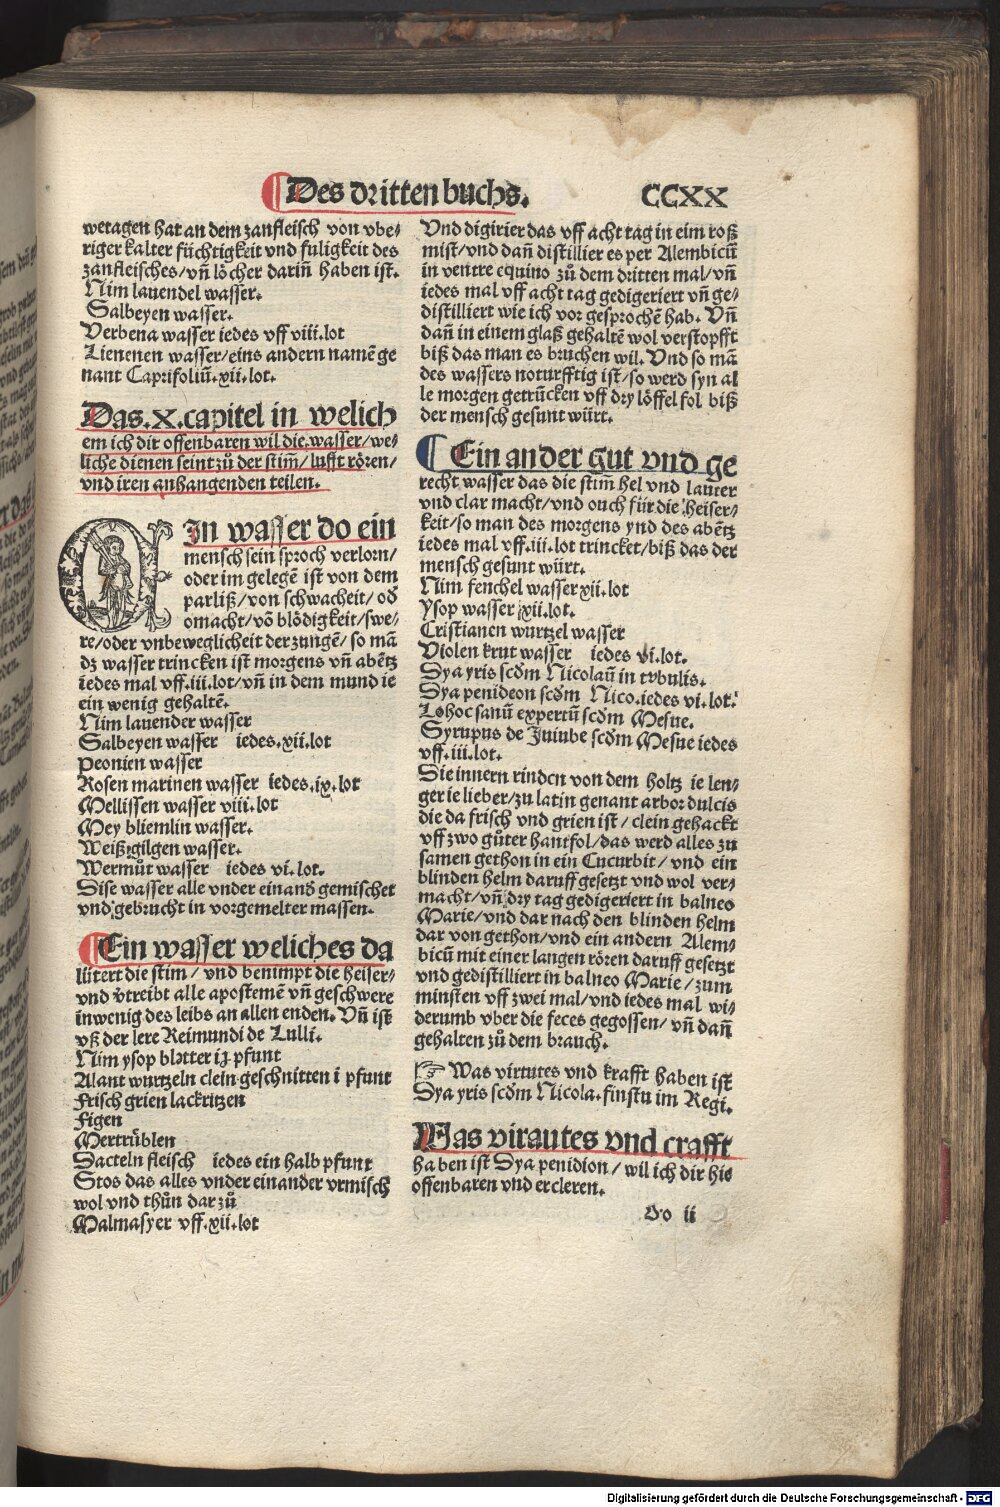 Des dritten buchs.
CCXX
wetagen hat an dem zanfleisch von vbe/
riger kalter füchtigkeit vnd fuligkeit des
zanfleisches/vn̄ löcher darin̄ haben ist.
Nim lauendel wasser.
Salbeyen wasser.
Verbena wasser iedes vff viii.lot
Lienenen wasser/eins andern namē ge
nant Caprifoliū.xii.lot.
Das.x.capitel in welich
em ich dir offenbaren wil die wasser/we/
liche dienen seint zů der stim̄/lufft rören/
vnd iren anhangenden teilen.
In wasser do ein
mensch sein sproch verlorn/
oder im gelegē ist von dem
parliß/von schwacheit/od̄
omacht/vō blödigkeit/swe/
re/oder vnbeweglicheit der zungē/so mā
dz wasser trincken ist morgens vn̄ abētz
iedes mal vff.iii.lot/vn̄ in dem mund ie
ein wenig gehaltē.
Nim lauender wasser
Salbeyen wasser iedes.xii.lot
Peonien wasser
Rosen marinen wasser iedes.ix.lot
Mellissen wasser viii.lot
Mey bliemlin wasser.
Weiß gilgen wasser.
Wermůt wasser iedes vi.lot.
Dise wasser alle vnder einand̄ gemischet
vnd gebrucht in vorgemelter massen.
Ein wasser weliches da
lütert die stim/vnd benimpt die heiser/
vnd v̄treibt alle apostemē vn̄ geschwere
inwenig des leibs an allen enden. Vn̄ ist
vß der lere Reimundi de Lulli.
Nim ysop bletter ij pfunt
Alant wurtzeln clein geschnitten i pfunt
Frisch grien lackritzen
Figen
Mertrüblen
Dacteln fleisch iedes ein halb pfunt
Stos das alles vnder einander vrmisch
wol vnd thůn dar zů
Malmasyer vff.xii.lot
Vnd digirier das vff acht tag in eim roß
mist/vnd dan̄ distillier es per Alembicū
in ventre equino zů dem dritten mal/vn̄
iedes mal vff acht tag gedigeriert vn̄ ge/
distilliert wie ich vor gesprochē hab. Vn̄
dan̄ in einem glaß gehaltē wol verstopfft
biß das man es bruchen wil. Vnd so mā
des wassers noturfftig ist/so werd syn al
le morgen getrūcken vff dry löffel fol biß
der mensch gesunt würt.
Ein ander gut vnd ge
recht wasser das die stim̄ hel vnd lauter
vnd clar macht/vnd ouch für die heiser/
keit/so man des morgens vnd des abētz
iedes mal vff.iii.lot trincket/biß das der
mensch gesunt würt.
Nim fenchel wasser xii.lot
Ysop wasser xii.lot.
Cristianen wurtzel wasser
Violen krut wasser iedes vi.lot.
Dya yris scd̄m Nicolaū in tvbulis.
Dya penideon scd̄m Nico.iedes vi.lot.
Lohoc sanū expertū scd̄m Mesue.
Syrupus de Iuiube scd̄m Mesue iedes
vff.iii.lot.
Die innern rinden von dem holtz ie len/
ger ie lieber/zu latin genant arbor dulcis
die da frisch vnd grien ist/clein gehackt
vff zwo gůter hantfol/das werd alles zu
samen gethon in ein Cucurbit/vnd ein
blinden helm daruff gesetzt vnd wol ver/
macht/vn̄ dry tag gedigeriert in balneo
Marie/vnd dar nach den blinden helm
dar von gethon/vnd ein andern Alem/
bicū mit einer langen rören daruff gesetzt
vnd gedistilliert in balneo Marie/zum
minsten vff zwei mal/vnd iedes mal wi/
derumb vber die feces gegossen/vn̄ dan̄
gehalten zů dem brauch.
☞ Was virtutes vnd krafft haben ist
Dya yris scd̄m Nicola.finstu im Regi.
Was virautes vnd crafft
haben ist Dya penidion/wil ich dir hie
offenbaren vnd ercleren.
Oo ii
Digitalisierung gefördert durch die Deutsche Forschungsgemeinschaft - DFG